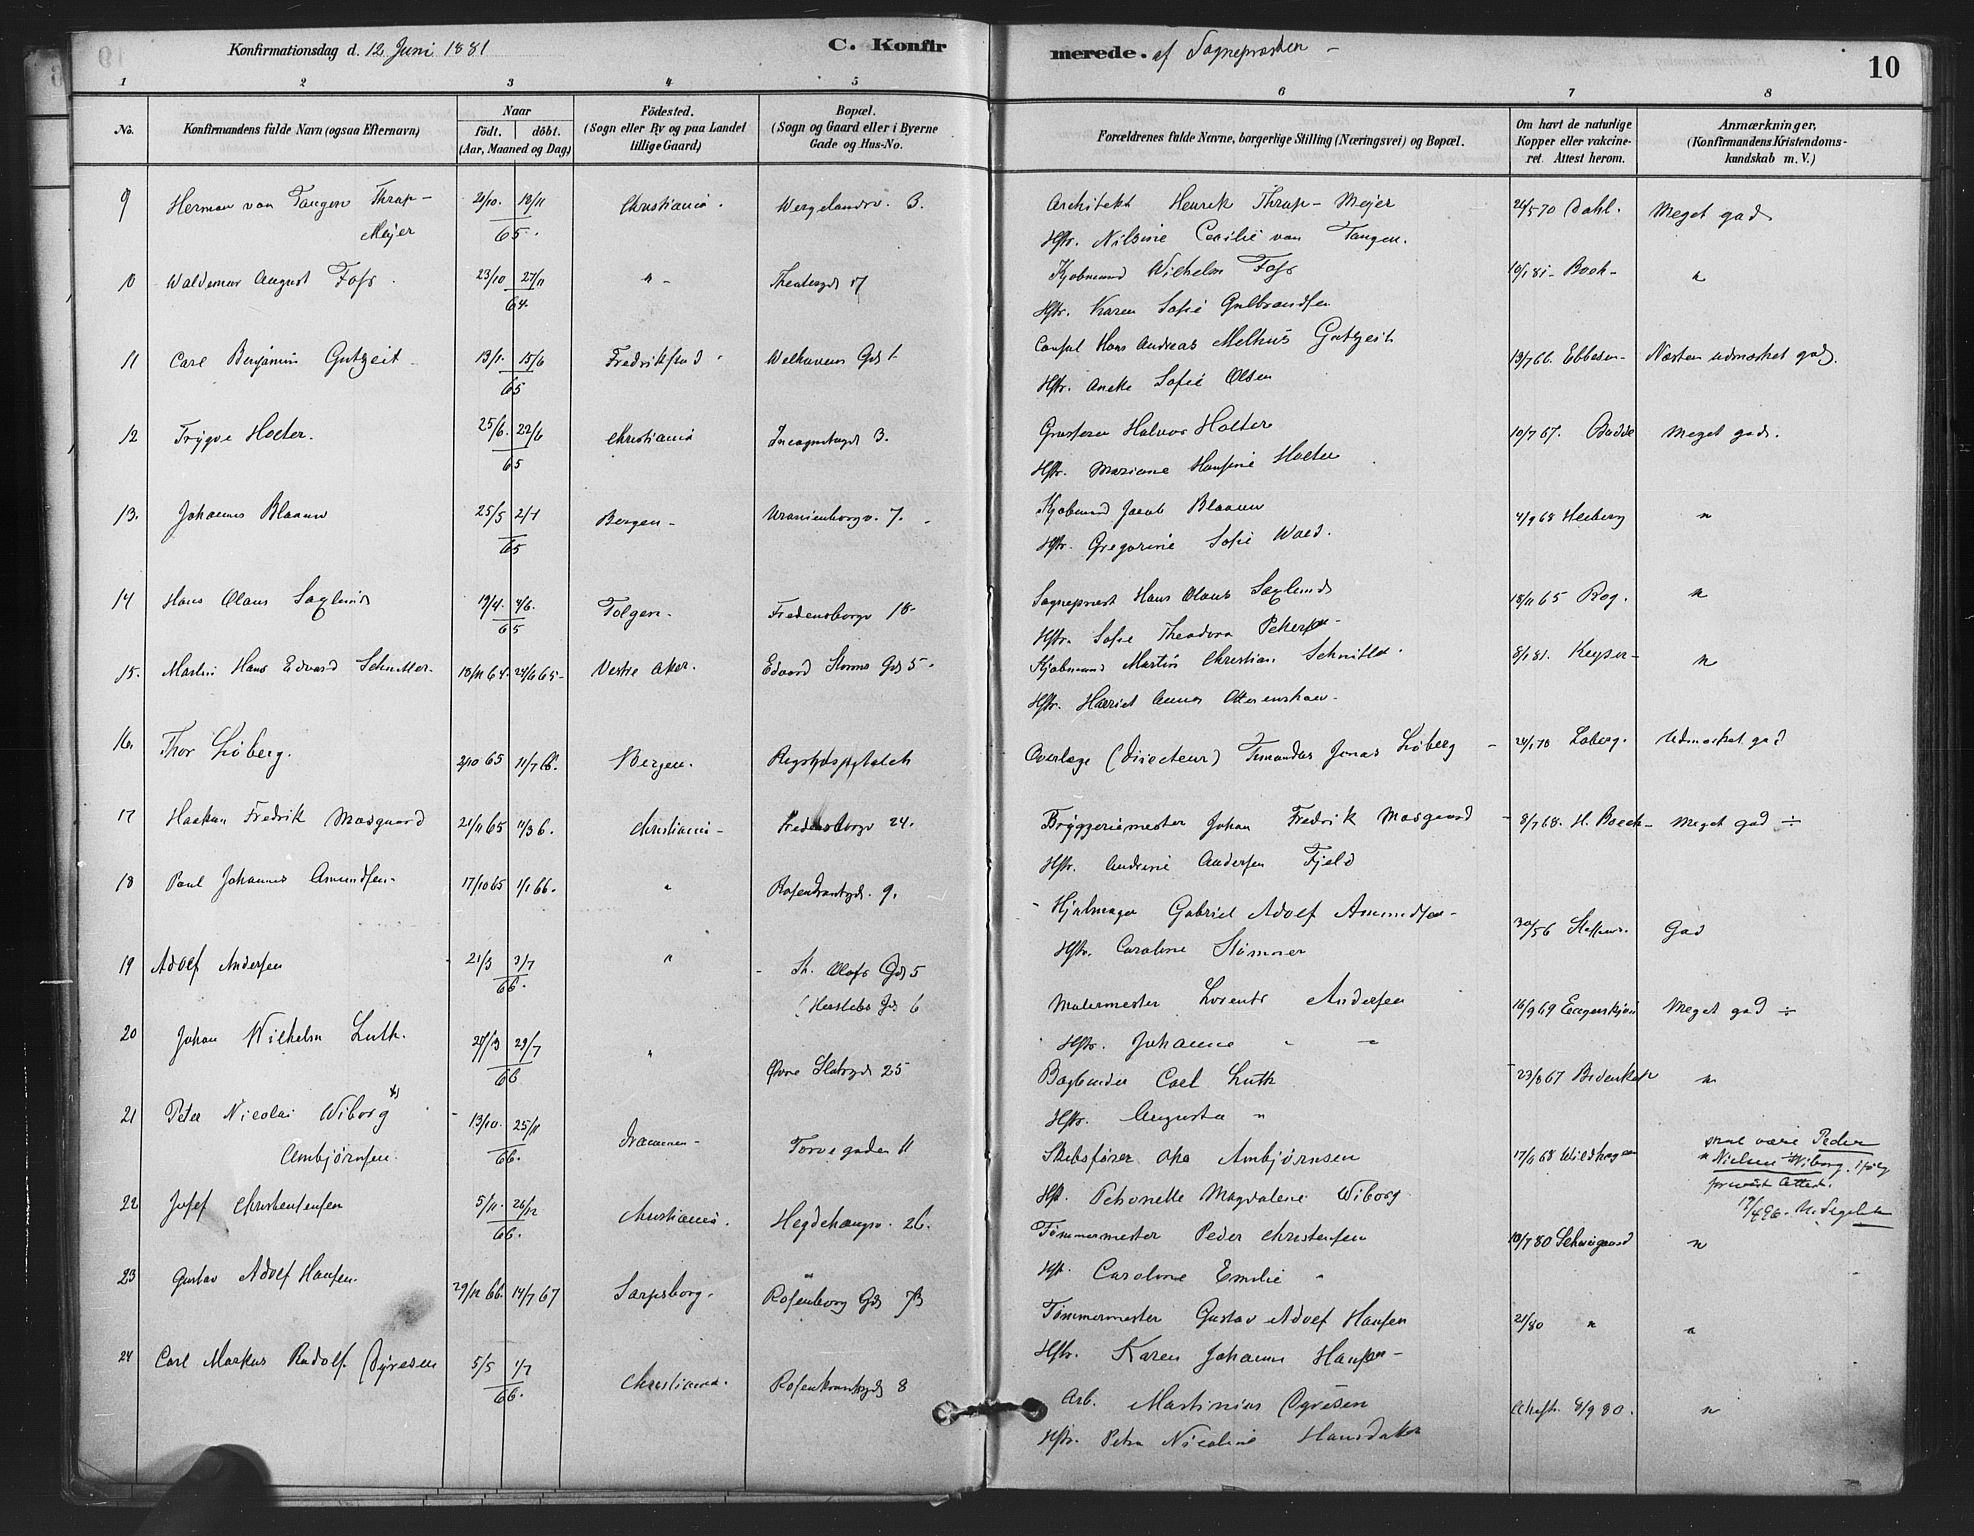 Konfirmationsdag d. 12 Juni 1881 C. Konfir merede. af Sognepræsten - 10
1 2 3 4 5 6 7 8
No. Konfirmandens fulde Navn (ogsaa Efternavn) Naar födt. döbt. (Aar, Maaned og Dag) Födested. (Sogn eller By og paa Landet tillige Gaard) Bopæl. (Sogn og Gaard eller i Byerne Gade og Hus-No. Forældrenes fulde Navne, borgerlige Stilling (Næringsvei) og Bopæl. Om havt de naturlige Kopper eller vakcineret. Attest herom. Anmærkninger, (Konfirmandens Kristendomskundskab m. V.)
9 Herman van Tangen Thrap- 18/11 Christiania. Wergelandsv. 3. Architekt Henrik Thrap-Mejer 26/5 70 Dahl. Meget god
Mejer 65. Hstr. Nilsine Cecilie van Tangen.
10 Waldemar August Foss. 23/10 27/11 " - Theatergd 17 Kjøbmand Wilhelm Foss 10/1 81 - Boek- "
64. Hstr. Karen Sofie Gulbrandsen
11 Carl Benjamin Gutzeit 13/1. 15/6 Fredrikstad Welhavens Gd 1. Consul Hans Andreas Melhus Gutzeit 13/7 66. Ebbesen- Næsten udmærket god.
65 Hstr. Aneke Sofie Olsen
12 Trygve Holter. 25/6. 22/6 Christiania Incognitogd 3. Grosserer Halvor Holter 10/7 67. Budde Meget god.
65 Hstr. Mariane Hansine Holter
13. Johannes Blaauw 25/5 2/1 Bergen - Uranienborgv. 7. Kjøbmand Jacob Blaauw 4/9 68 Heiberg "
65 Hstr. Gregorine Sofie
14 Hans Olaus Saxlund 19/4. 4/6. Tolgen - Fredensborgv 18- Sognepræst Hans Olaus Saxlund 18/11 65 Rog. "
65 Hstr. Sofie Theodora Petersen -
15. Martin Hans Edvard Schnitler. 18/11 64. 24/6 65 - Vestre Aker. Edvard Storms Gd 5. Kjøbmand Martin Christian Schnitler. 8/1 81. Keyser - "
Hstr. Harriet Anna
16. Thor Løberg. 2/10 65 11/7 66. Bergen. Rigshospitalet Overlæge (Directeur) Timandus Jonas Løberg - 24/1 70 Løberg. Udmærket god
17 Haakon Fredrik Mosgaard 21/11 65 11/3 6. Christiania - Fredensborgv 24. Bryggeriemester Johan Fredrik Mosgaard - 8/7 68. H. Boeck - Meget god ÷
Hstr. Andrine Andersen Fjeld
18 Paul Johannes Amundsen - 17/10 65 1/1 66. " Rosenkrantzgd. 9. Hjulmager Gabriel Adolf Amundsen - 56 Steffens. God
Hstr. Caroline
19 Adolf Andersen 21/3 3/7 " St. Olafs Gd 5
66. (Herslebs Gd 6 Malermester Lorents Andersen 16/9 69 Meget god ÷
20 Johan Wilhelm Luth. 29/7 " Øvre Slotsgd 25 Hstr. Johanne " -
66 Bogbinder Carl Luth 23/8 67 Bidenkap "
21 Peter Nicolai Wiborg x) 13/10. 25/11 Drammen - Torvegaden 11 Hstr. Augusta "
Ambjørnsen. 66. Skibsfører Ambjørnsen 17/6 68 Wildhagen " skal være Peder
Hst. Petronelle Magdalene Wiborg Nielsen Wiborg, ifølg
præst. Attest.
22 Josef Christensen 5/11. 26/12 Christiania. Hegdehaugsv. 26. Tømmermester Peder Christensen 10/7 80 Schweigaard "
66. Hst. Caroline Emilie "
23 Gustav Adolf Hansen. 29/12 66. 14/7 67 Sarpsborg. Rosenborg Gd 7B Tømmermester Gustav Adolf Hansen 80 " "
Hstr. Karen Johanne Hansen -
24 Carl Markus Rudolf Dyresen 5/5 1/7 Christiania. Rosenkrantzgd 8 Arb. Martinius Dyresen Attest. 8/9 80. "
66. Hstr. Petra Nicoline Hansdatter